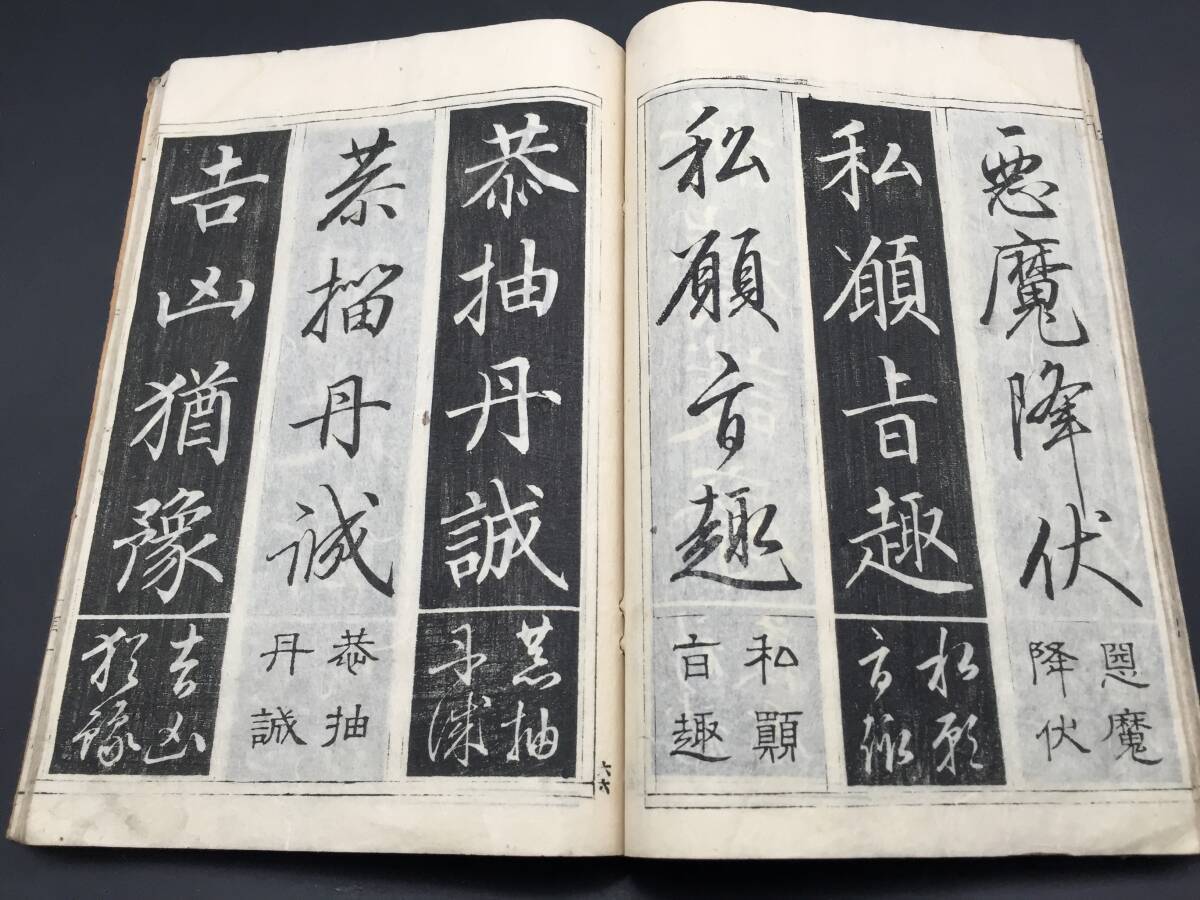 惡魔降伏
惡魔
降伏
私願旨趣
私願
旨趣
私願旨趣
私願
旨趣
恭抽丹誠
恭抽
丹誠
恭抽丹誠
恭抽
丹誠
吉凶猶豫
吉凶
猶豫
六六